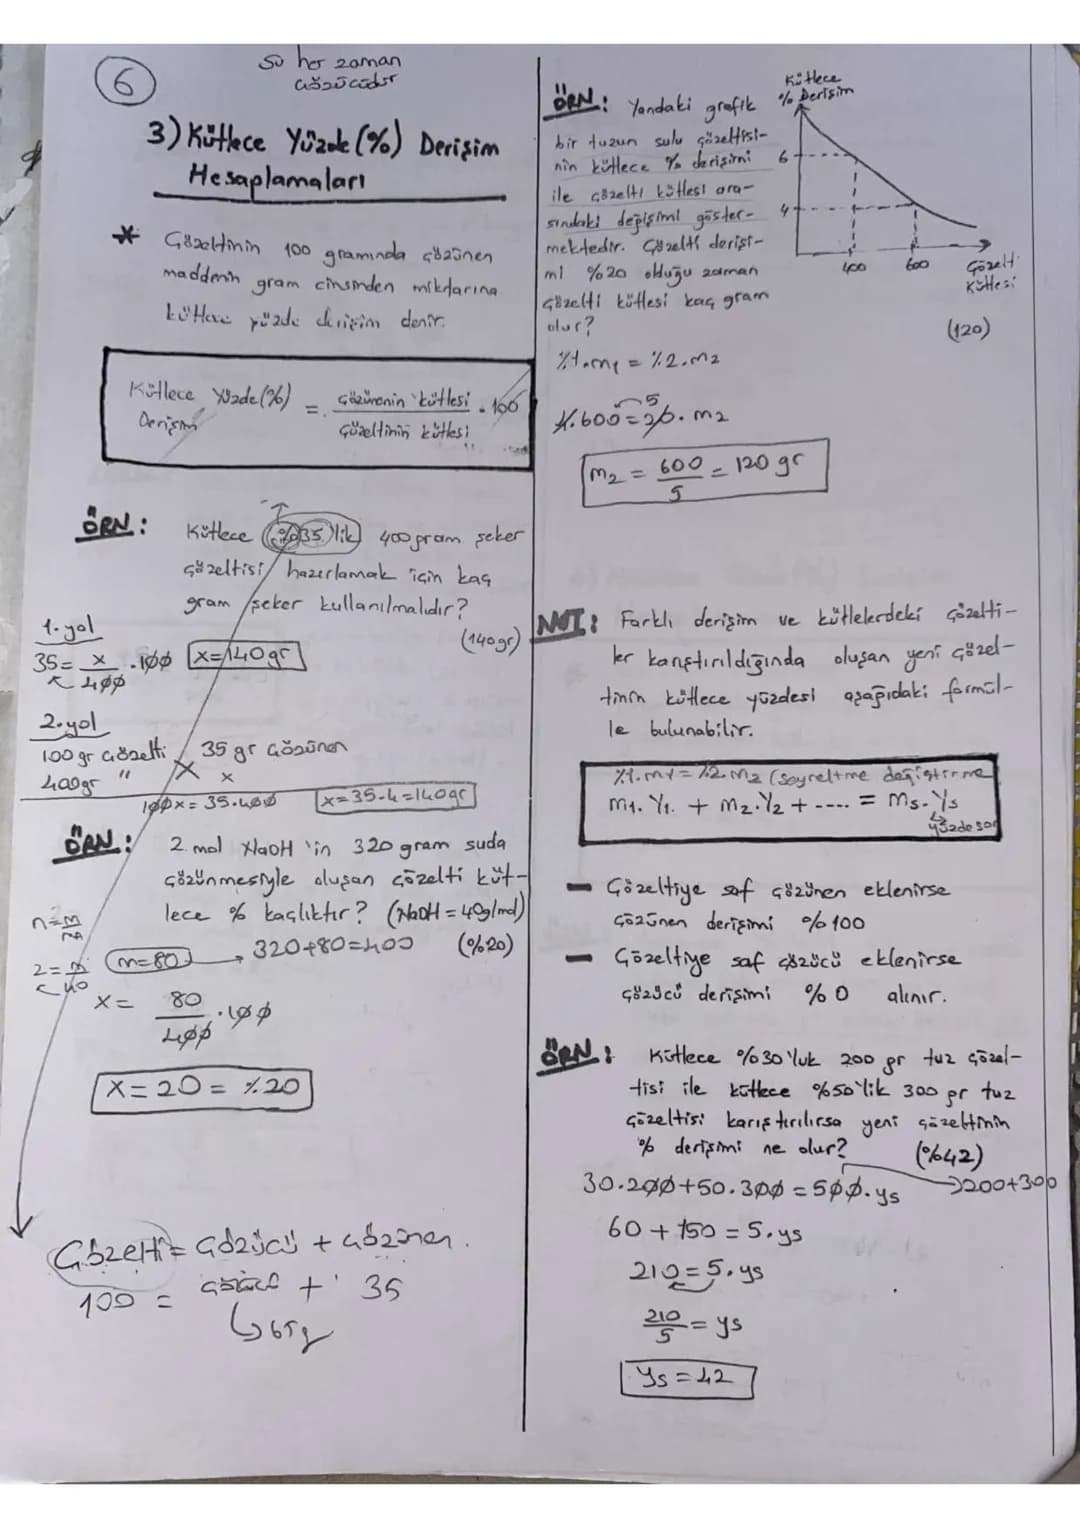 6
su her zaman
çözücüdür
3) Kütlece Yüzde (%) Derişim
Hesaplamaları
* Çözeltinin 100 gramında çözünen
maddenin gram cinsinden miktarına
kütlece yüzde derişim denir.
Kütlece Yüzde (%) Derişim = çözünenin kütlesi / çözeltinin kütlesi . 100
ÖRN: Kütlece %35'lik 400 gram şeker
çözeltisi hazırlamak için kaç
gram şeker kullanılmalıdır?
(140gr)
1. yol
35 = x/400 . 100 x=140gr
2. yol
100 gr çözelti 35 gr çözünen
400gr " x
100x = 35.400 x=35.4=140gr
ÖRN: 2 mol NaOH 'in 320 gram suda
çözünmesiyle oluşan çözelti küt-
lece % kaçlıktır? (NaOH = 40g/mol)
(%20)
n=m/MA
2=m/40 m=80 → 320+80=400
x= 80/400 . 100
x=20= %20
Çözelti = Çözücü + çözünen.
100 = çözücü + 35
↳65g
ÖRN: Yandaki grafik
bir tuzun sulu çözeltisi-
nin kütlece % derişimi
ile çözelti kütlesi ara-
sındaki değişimi göster-
mektedir. Çözelti derişi-
mi %20 olduğu zaman
çözelti kütlesi kaç gram
olur?
(120)
Kütlece
% Derişim
6
4
400 600
Çözelti
Kütlesi
%1.m1 = %2.m2
4.600=20.m2
5
m2 = 600/5 = 120 gr
NOT: Farklı derişim ve kütlelerdeki çözelti-
ler karıştırıldığında oluşan yeni çözel-
tinin kütlece yüzdesi aşağıdaki formül-
le bulunabilir.
%1.m1=%2.m2 (seyreltme değiştirme
m1.Y1. + m2.Y2 + ---- = ms.Ys
yüzde son
- Çözeltiye saf çözünen eklenirse
çözünen derişimi %100
- Çözeltiye saf çözücü eklenirse
çözücü derişimi %0 alınır.
ÖRN: Kütlece %30'luk 200 gr tuz çözel-
tisi ile kütlece %50'lik 300 gr tuz
çözeltisi karıştırılırsa yeni çözeltinin
% derişimi ne olur? (%42)
30.200+50.300=500.ys →200+300
60+150=5.ys
210=5.ys
210/5=ys
Ys=42